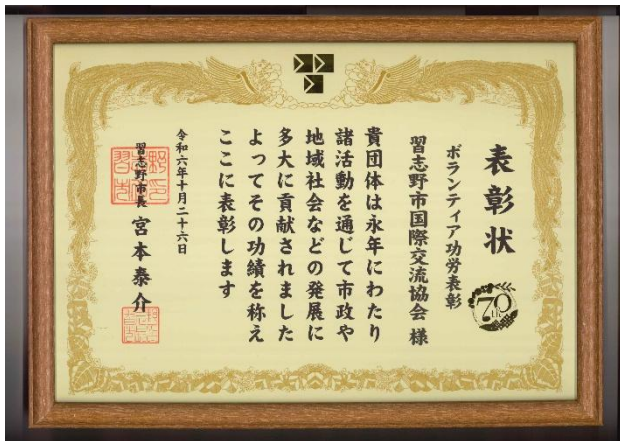 表彰状
70th
ボランティア功労表彰
習志野市国際交流協会 様
貴団体は永年にわたり
諸活動を通じて市政や
地域社会などの発展に
多大に貢献されました
よってその功績を称え
ここに表彰します
令和六年十月二十六日
習志野市長 宮本泰介